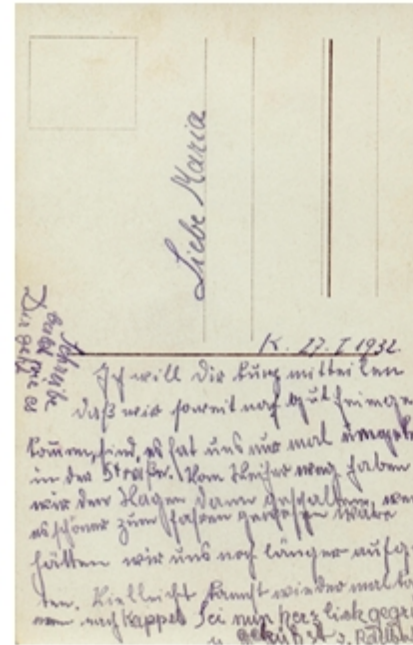 Liebe Maria
K. 27. I 1932.
Ich will Dir kurz mitteilen
daß wir soweit noch gut heimge
kommen sind, es hat uns nur mal
in der Straße. Vom weg haben
wir den Wagen dann gehalten, we
es schöner zum fahren gewesen wäre
hätten wir uns noch länger aufg
ten. Vielleicht kannst wieder mal
nach Kappel Sei nun herzlich gegr
u. geküßt v.
Schreibe
bald wie es
Dir geht